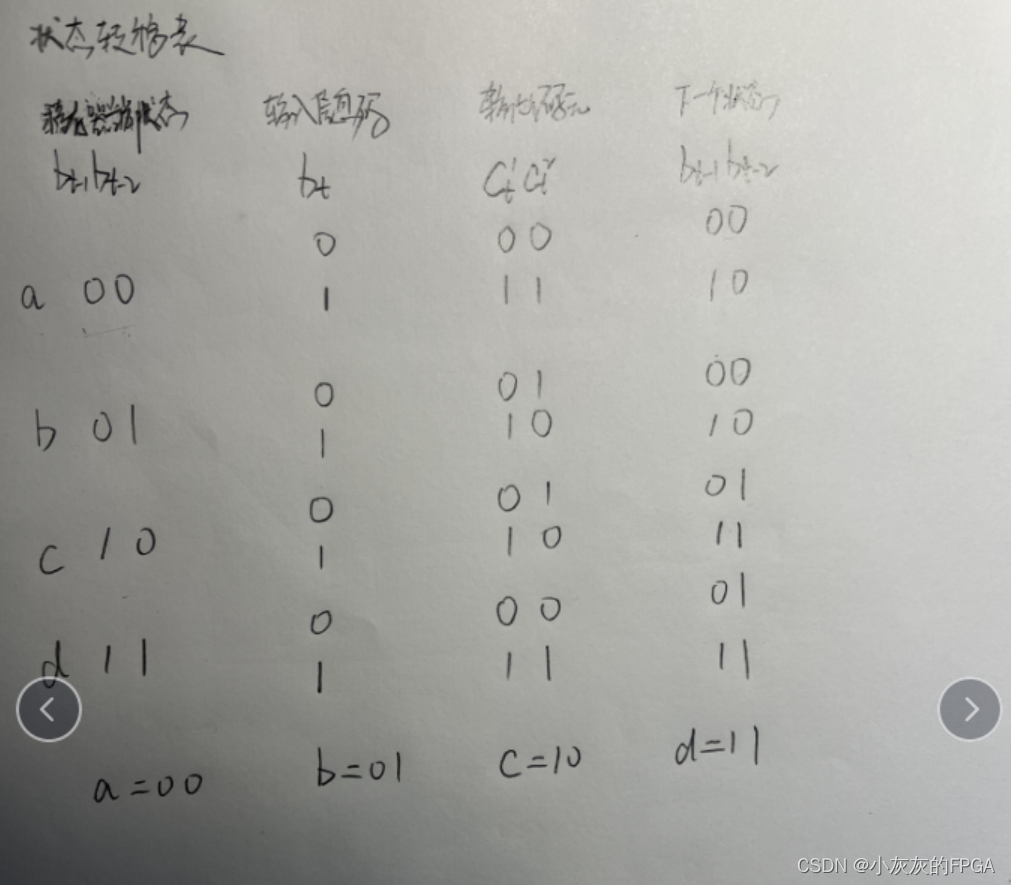 状态转移表
移存器当前状态 输入信息码 输出码元 下一个状态
bt-1bt-2 bt Ct1Ct2 bt-1bt-2
0 00 00
a 00 1 11 10
0 01 00
b 01 1 10 10
0 01 01
c 10 1 10 11
0 00 01
d 11 1 11 11
a=00 b=01 c=10 d=11
CSDN @小灰灰的FPGA